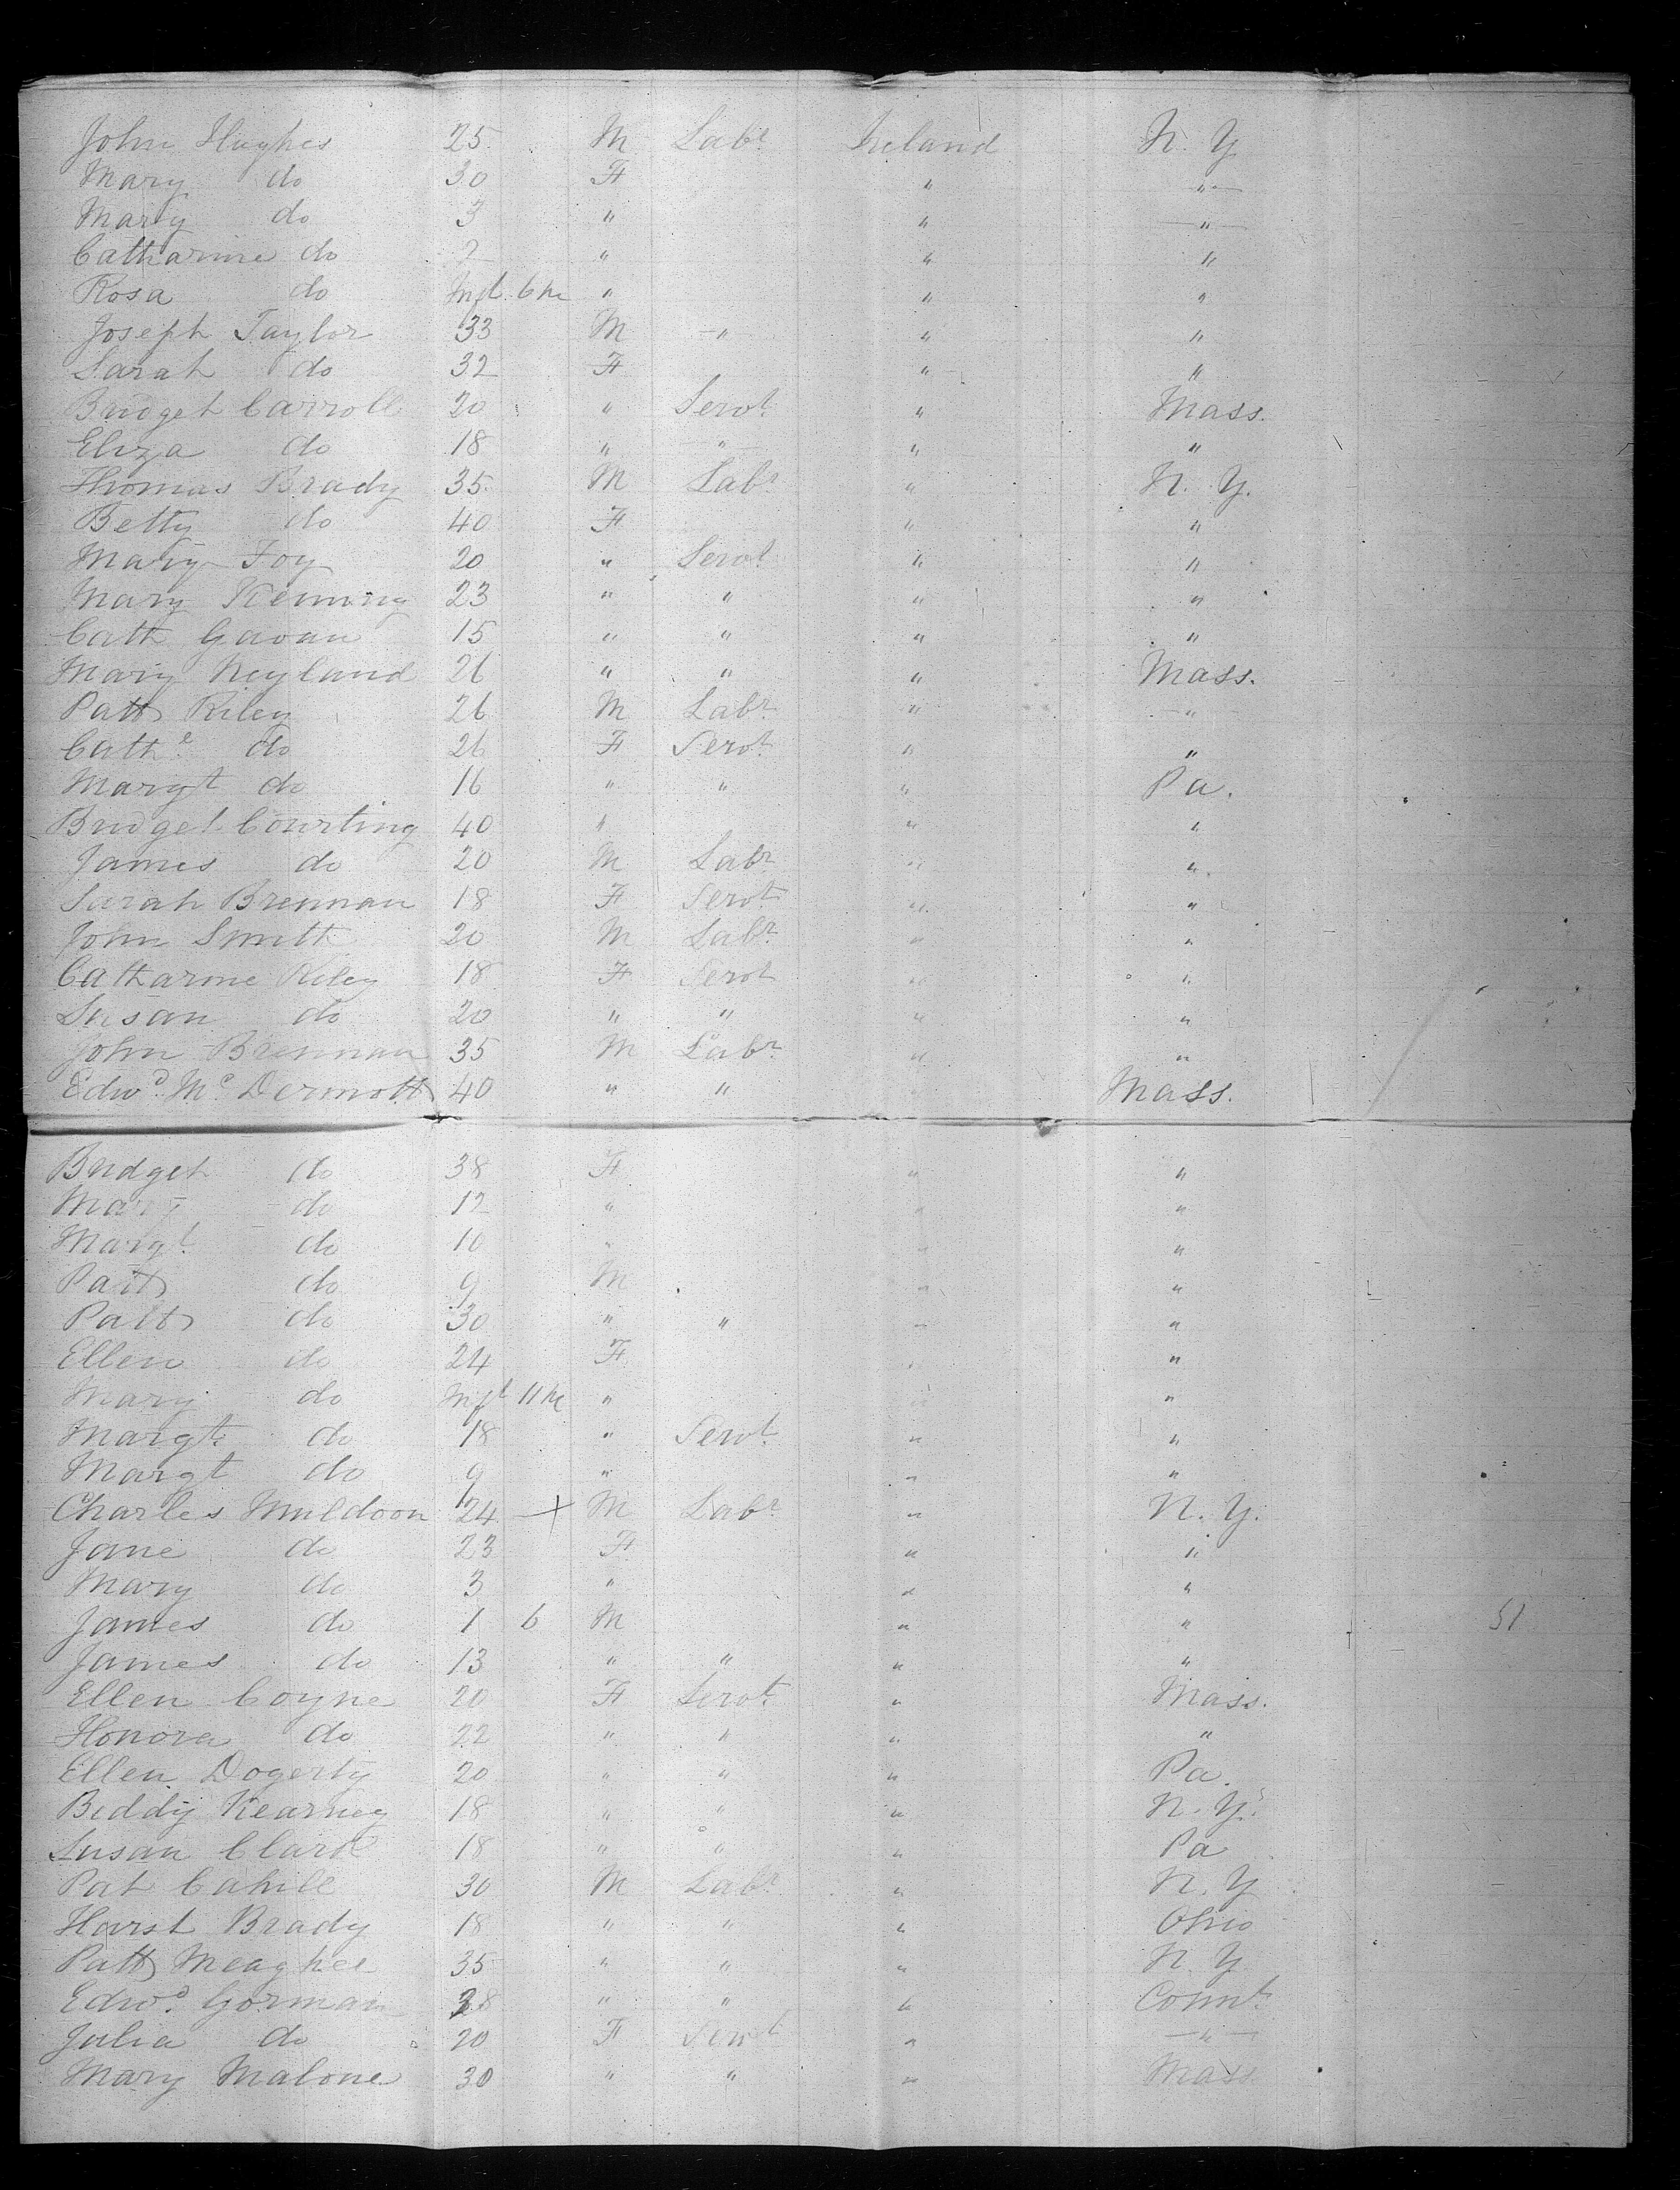 John Hughes 25 M Labr Ireland N. Y.
Mary do 30 F " "
Mary do 3 " " "
Catharine do 2 " " "
Rosa do Inft 6 m " " "
Joseph Taylor 33 M " " "
Sarah do 32 F " "
Bridget Carroll 20 " Servt " Mass.
Eliza do 18 " " " "
Thomas Brady 35 M Labr " N. Y.
Betty do 40 F " "
Mary Foy 20 " Servt " "
Mary 23 " " " "
Cath Gavan 15 " " " "
Mary Neyland 26 " " " Mass.
Patt Riley 26 M Labr " "
Cathe do 26 F Servt " "
Margt do 16 " " " Pa.
Bridget Courting 40 " " "
James do 20 M Labr " "
Sarah Brennan 18 F Servt " "
John Smith 20 M Labr " "
Catharine Riley 18 F Servt " "
Susan do 20 " " " "
John Brennan 35 M Labr " "
Edwd McDermott 40 " " " Mass.
Bridget do 38 F " "
Mary do 12 " " "
Margt do 10 " " "
Patt do 9 M " "
Patt do 30 " " " "
Ellen do 24 F " "
Mary do Inft 11 m " " "
Margt do 18 " Servt " "
Margt do 9 " " "
Charles Muldoon 24 x M Labr " N. Y.
Jane do 23 F " "
Mary do 3 " " "
James do 1 6 M " " 51
James do 13 " " " "
Ellen Coyne 20 F Servt " Mass.
Honora do 22 " " " "
Ellen Dogerty 20 " " " Pa.
Biddy Kearney 18 " " " N. Y.
Susan Clark 18 " " " Pa
Pat Cahill 30 M Labr " N. Y
Brady 18 " " " Ohio
Patt Meagher 35 " " " N. Y
Edwd Gorman 38 " " " Connt.
Julia do 20 F Servt " "
Mary Malone 30 " " " Mass